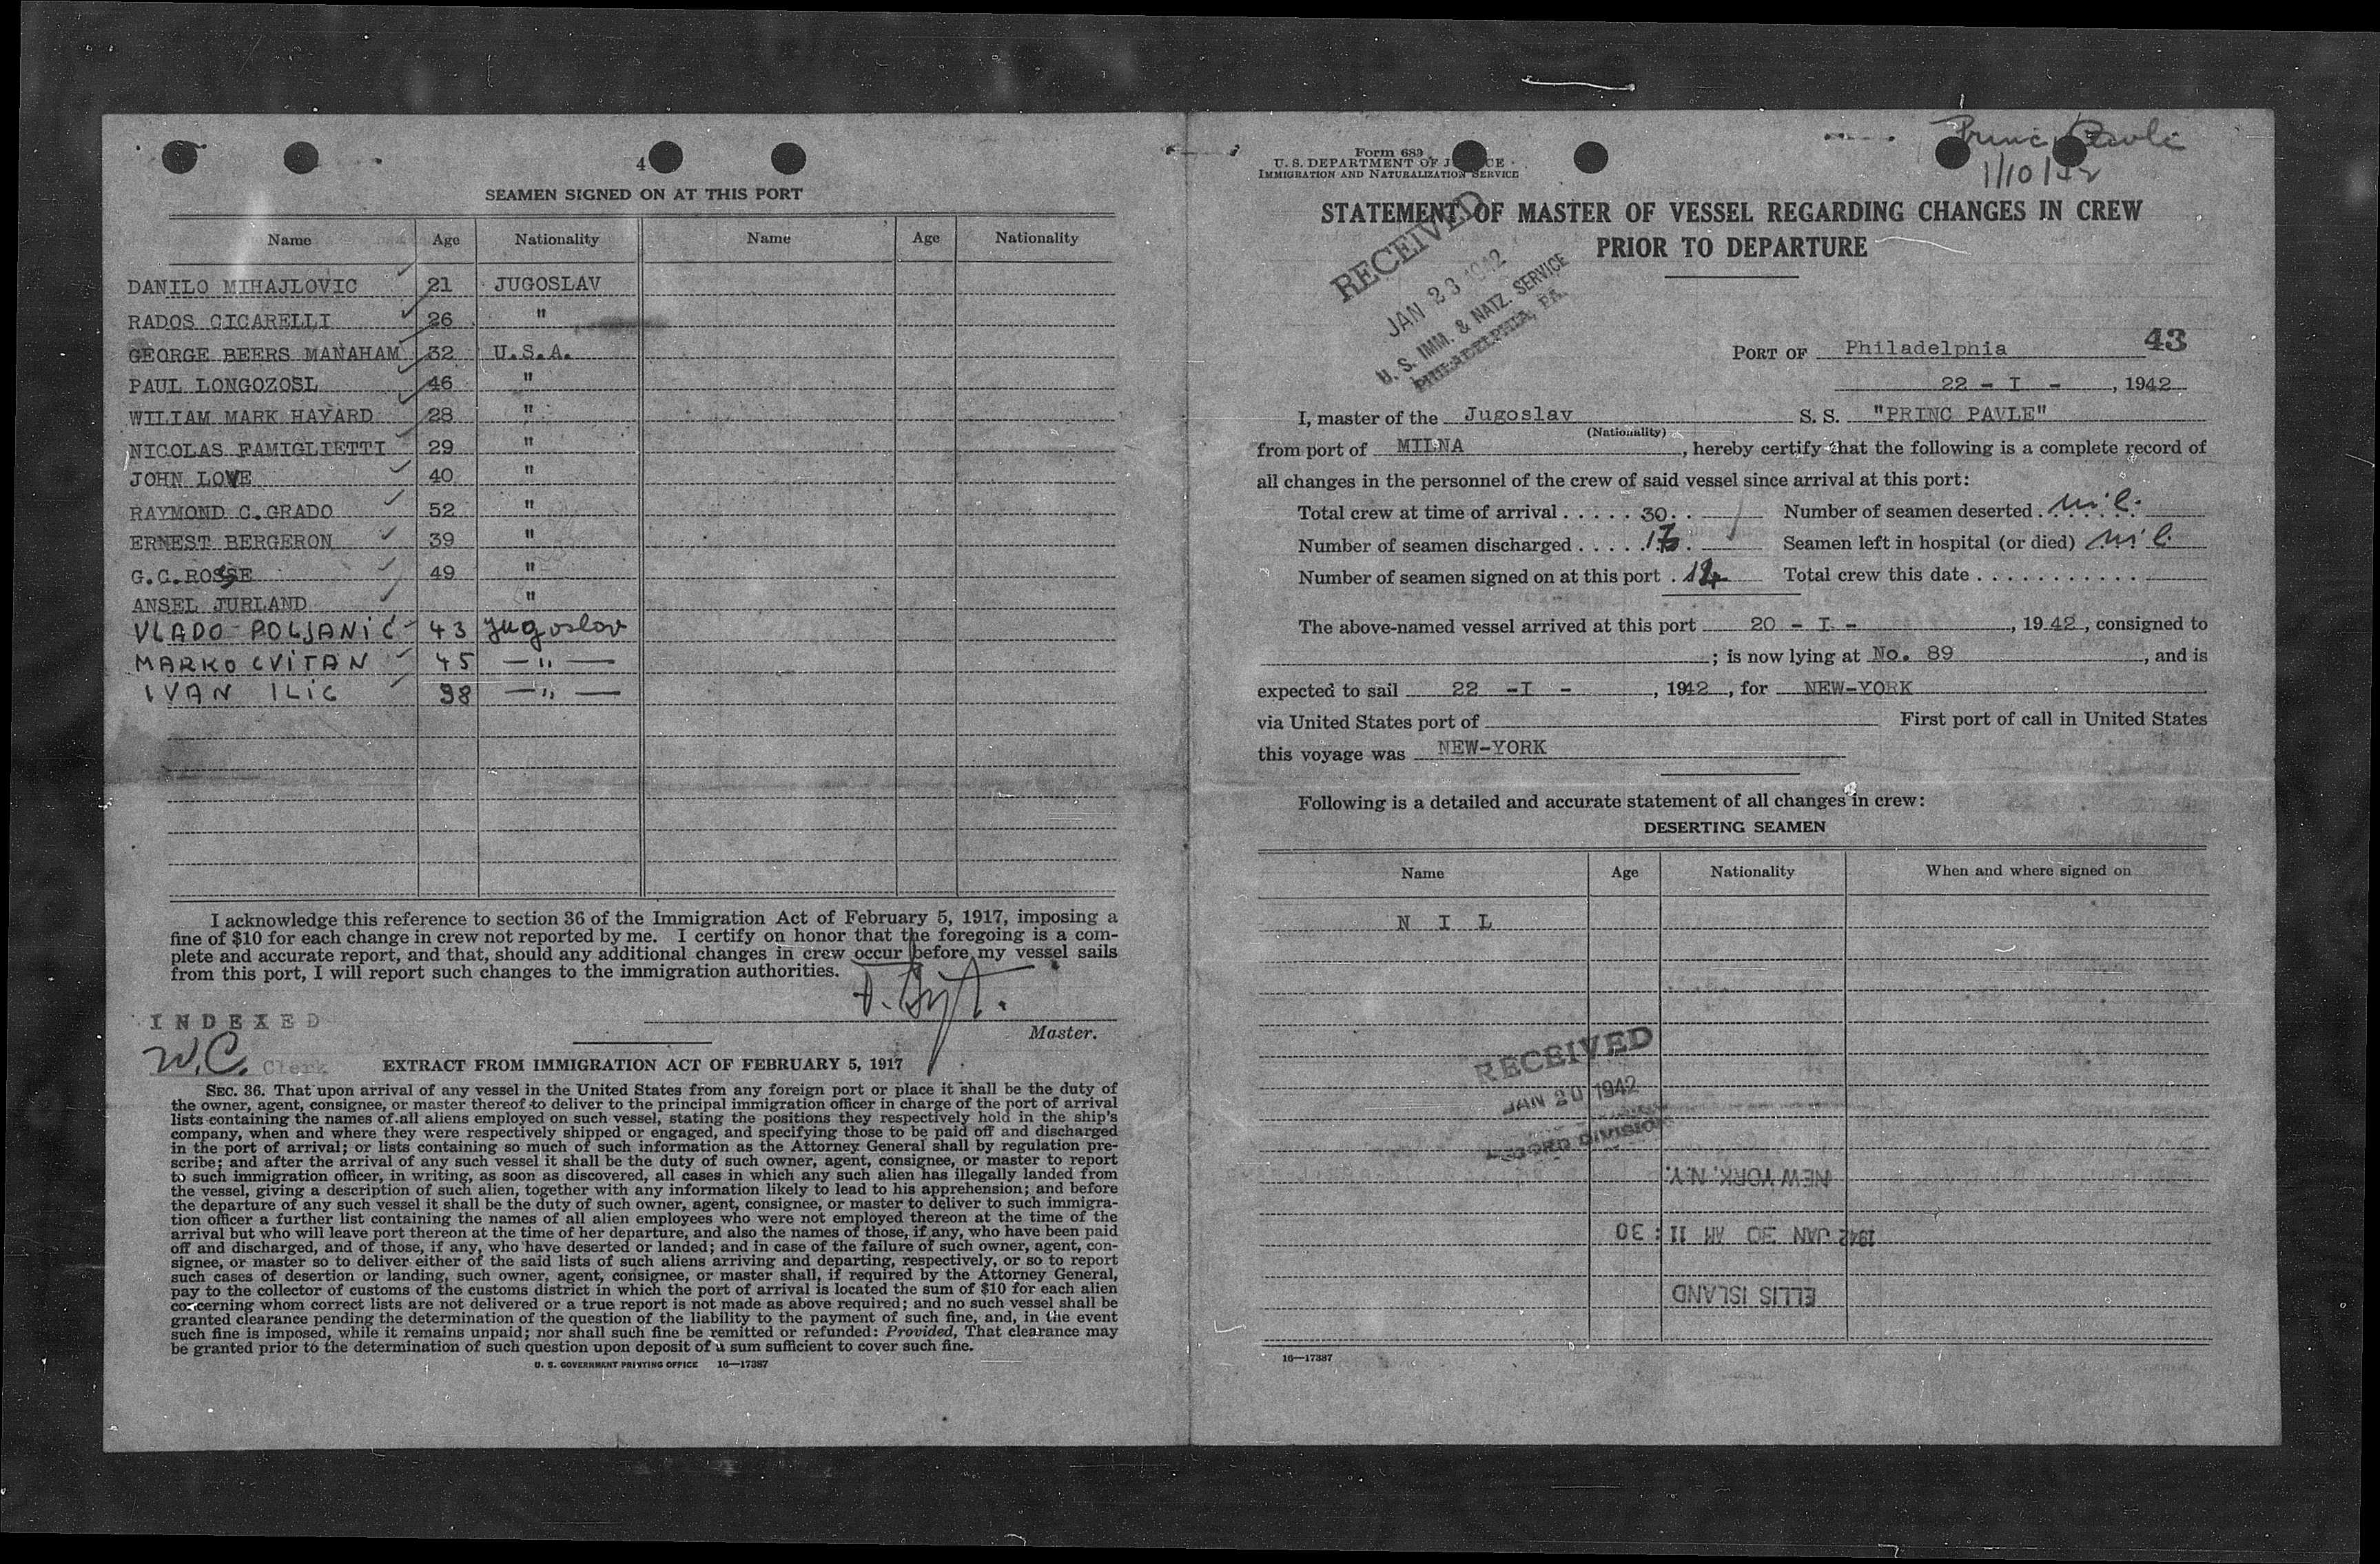 4
SEAMEN SIGNED ON AT THIS PORT
Name Age Nationality Name Age Nationality
DANILO MIHAJLOVIC 21 JUGOSLAV
RADOS CICARELLI 26 "
GEORGE BEERS MANAHAM 32 U.S.A.
PAUL LONGOZOSL 46 "
WILIAM MARK HAYARD 28 "
NICOLAS FAMIGLIETTI 29 "
JOHN LOVE 40 "
RAYMOND C.GRADO 52 "
ERNEST BERGERON 39 "
G.C. 49 "
ANSEL JURLAND "
VLADO POLJANIĆ 43 Jugoslav
MARKO CVITAN 45 — " —
IVAN ILIC 38 — " —
I acknowledge this reference to section 36 of the Immigration Act of February 5, 1917, imposing a
fine of $10 for each change in crew not reported by me. I certify on honor that the foregoing is a com-
plete and accurate report, and that, should any additional changes in crew occur before my vessel sails
from this port, I will report such changes to the immigration authorities.
INDEXED
Master.
W.C. Clerk
EXTRACT FROM IMMIGRATION ACT OF FEBRUARY 5, 1917
SEC. 36. That upon arrival of any vessel in the United States from any foreign port or place it shall be the duty of
the owner, agent, consignee, or master thereof to deliver to the principal immigration officer in charge of the port of arrival
lists containing the names of all aliens employed on such vessel, stating the positions they respectively hold in the ship's
company, when and where they were respectively shipped or engaged, and specifying those to be paid off and discharged
in the port of arrival; or lists containing so much of such information as the Attorney General shall by regulation pre-
scribe; and after the arrival of any such vessel it shall be the duty of such owner, agent, consignee, or master to report
to such immigration officer, in writing, as soon as discovered, all cases in which any such alien has illegally landed from
the vessel, giving a description of such alien, together with any information likely to lead to his apprehension; and before
the departure of any such vessel it shall be the duty of such owner, agent, consignee, or master to deliver to such immigra-
tion officer a further list containing the names of all alien employees who were not employed thereon at the time of the
arrival but who will leave port thereon at the time of her departure, and also the names of those, if any, who have been paid
off and discharged, and of those, if any, who have deserted or landed; and in case of the failure of such owner, agent, con-
signee, or master so to deliver either of the said lists of such aliens arriving and departing, respectively, or so to report
such cases of desertion or landing, such owner, agent, consignee, or master shall, if required by the Attorney General,
pay to the collector of customs of the customs district in which the port of arrival is located the sum of $10 for each alien
concerning whom correct lists are not delivered or a true report is not made as above required; and no such vessel shall be
granted clearance pending the determination of the question of the liability to the payment of such fine, and, in the event
such fine is imposed, while it remains unpaid; nor shall such fine be remitted or refunded: Provided, That clearance may
be granted prior to the determination of such question upon deposit of a sum sufficient to cover such fine.
U. S. GOVERNMENT PRINTING OFFICE 16—17387
Princ Pavle
1/10/42
Form 689
U. S. DEPARTMENT OF JUSTICE
IMMIGRATION AND NATURALIZATION SERVICE
STATEMENT OF MASTER OF VESSEL REGARDING CHANGES IN CREW
PRIOR TO DEPARTURE
RECEIVED
JAN 23 1942
U. S. IMM. & NATZ. SERVICE
PHILADELPHIA, PA.
43
PORT OF Philadelphia
22 - I - , 1942
I, master of the Jugoslav S. S. "PRINC PAVLE"
(Nationality)
from port of MILNA , hereby certify that the following is a complete record of
all changes in the personnel of the crew of said vessel since arrival at this port:
Total crew at time of arrival . . . . . 30. . Number of seamen deserted . nil.
Number of seamen discharged . . . . . Seamen left in hospital (or died) nil
Number of seamen signed on at this port . 14 Total crew this date . . . . . . . . . . . .
The above-named vessel arrived at this port 20 - I - , 1942 , consigned to
; is now lying at No. 89 , and is
expected to sail 22 -I - , 1942 , for NEW-YORK
via United States port of First port of call in United States
this voyage was NEW-YORK
Following is a detailed and accurate statement of all changes in crew:
DESERTING SEAMEN
Name Age Nationality When and where signed on
N I L
RECEIVED
JAN 20 1942
RECORD DIVISION
NEW YORK, N.Y.
1942 JAN 30 AM 11:30
ELLIS ISLAND
16—17387